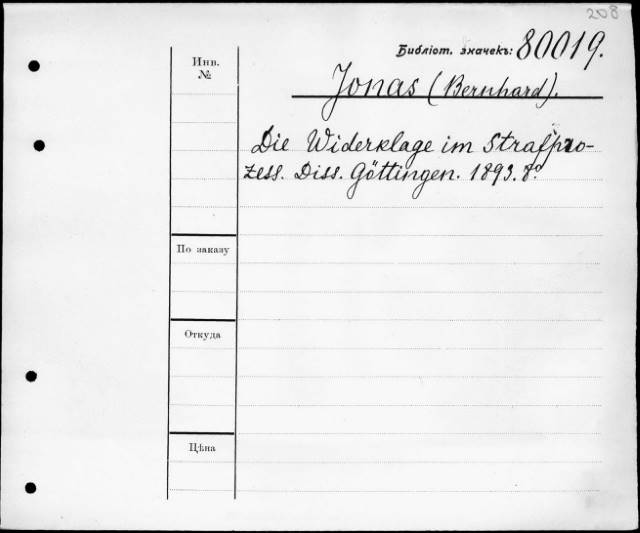 208
Библіот. значекъ: 80019.
Инв.
№
Jonas (Bernhard).
Die Widerklage im Strafpro-
zess. Diss. Göttingen. 1893. 8°
По заказу
Откуда
Цѣна